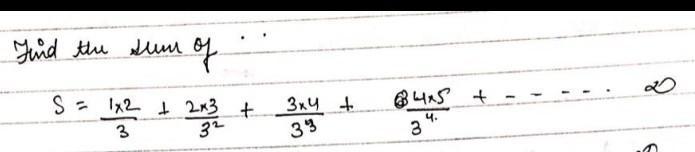 Find the sum of
S = 1×2/3 + 2×3/3² + 3×4/3³ + 4×5/3⁴ + - - - - - . ∞